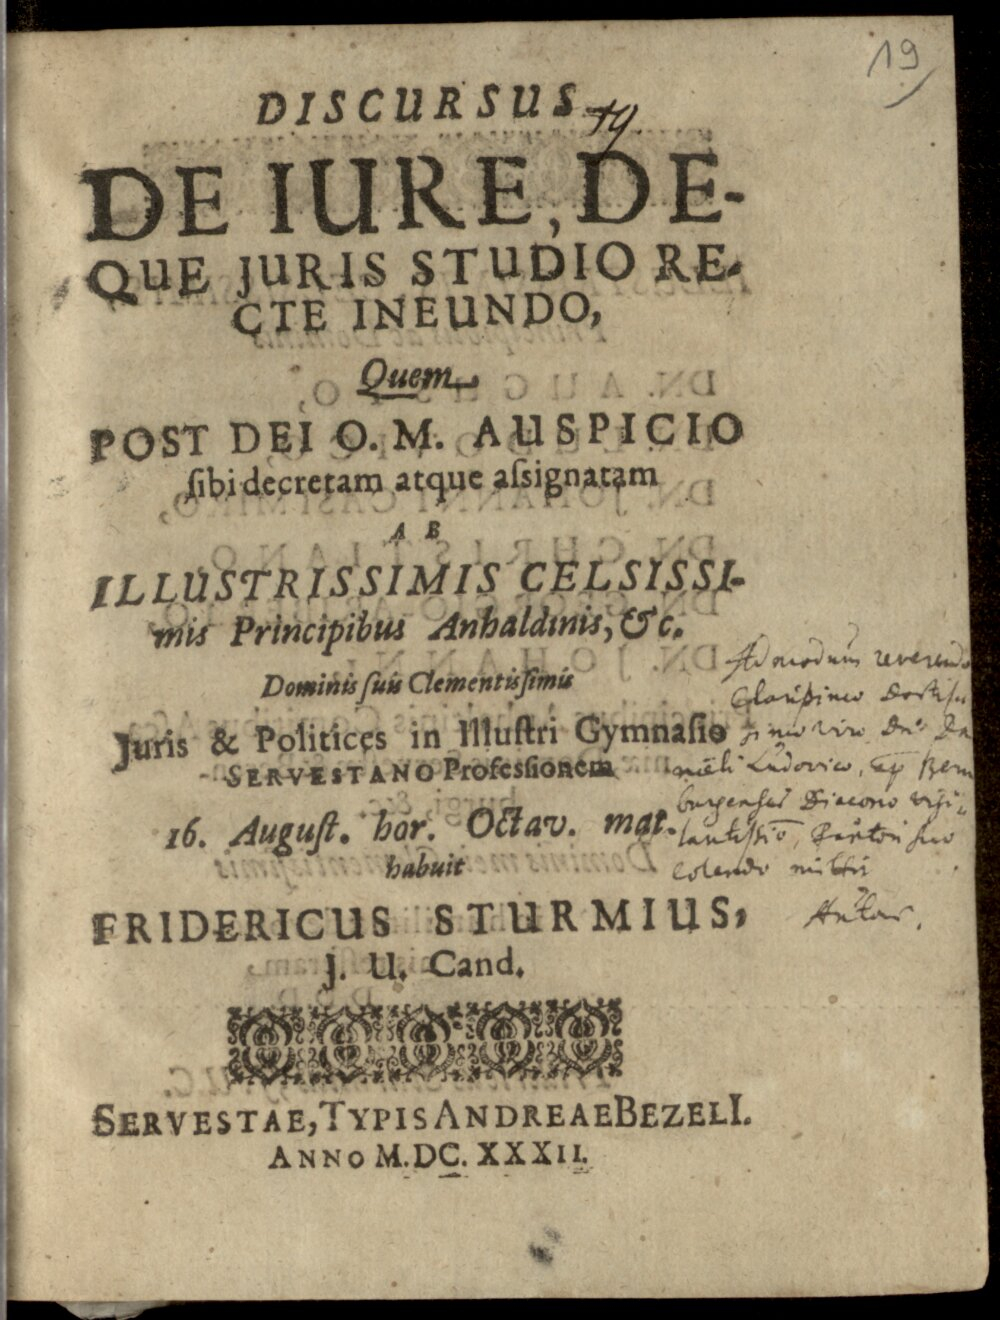 19
DISCURSUS
19.
DE IURE, DE-
QUE JURIS STUDIO RE-
CTE INEUNDO,
Quem
POST DEI O. M. AUSPICIO
sibi decretam atque assignatam
AB
ILLUSTRISSIMIS CELSISSI-
mis Principibus Anhaldinis, &c.
Dominis suis Clementissimis
Juris & Politices in Illustri Gymnasio
SERVESTANO Professionem
16. August. hor. Octav. mat.
habuit
FRIDERICUS STURMIUS,
J. U. Cand.
SERVESTAE, TYPIS ANDREAE BEZELI.
ANNO M.DC.XXXII.
Admodum reverendo
Clarissimo doctis
simo viro Dn. Da
nieli Ludovico, Bern
burgensis Diacono vigi
colendo mittit
Autor.